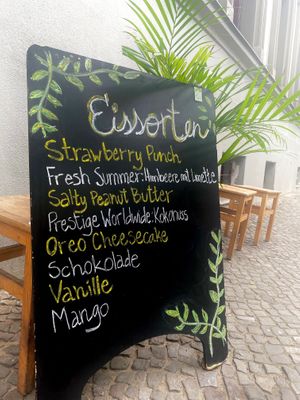 Eissorten
Strawberry Punch
Fresh Summer: Himbeere mit Limette
Salty Peanut Butter
Prestige Worldwide: Kokonuss
Oreo Cheesecake
Schokolade
Vanille
Mango